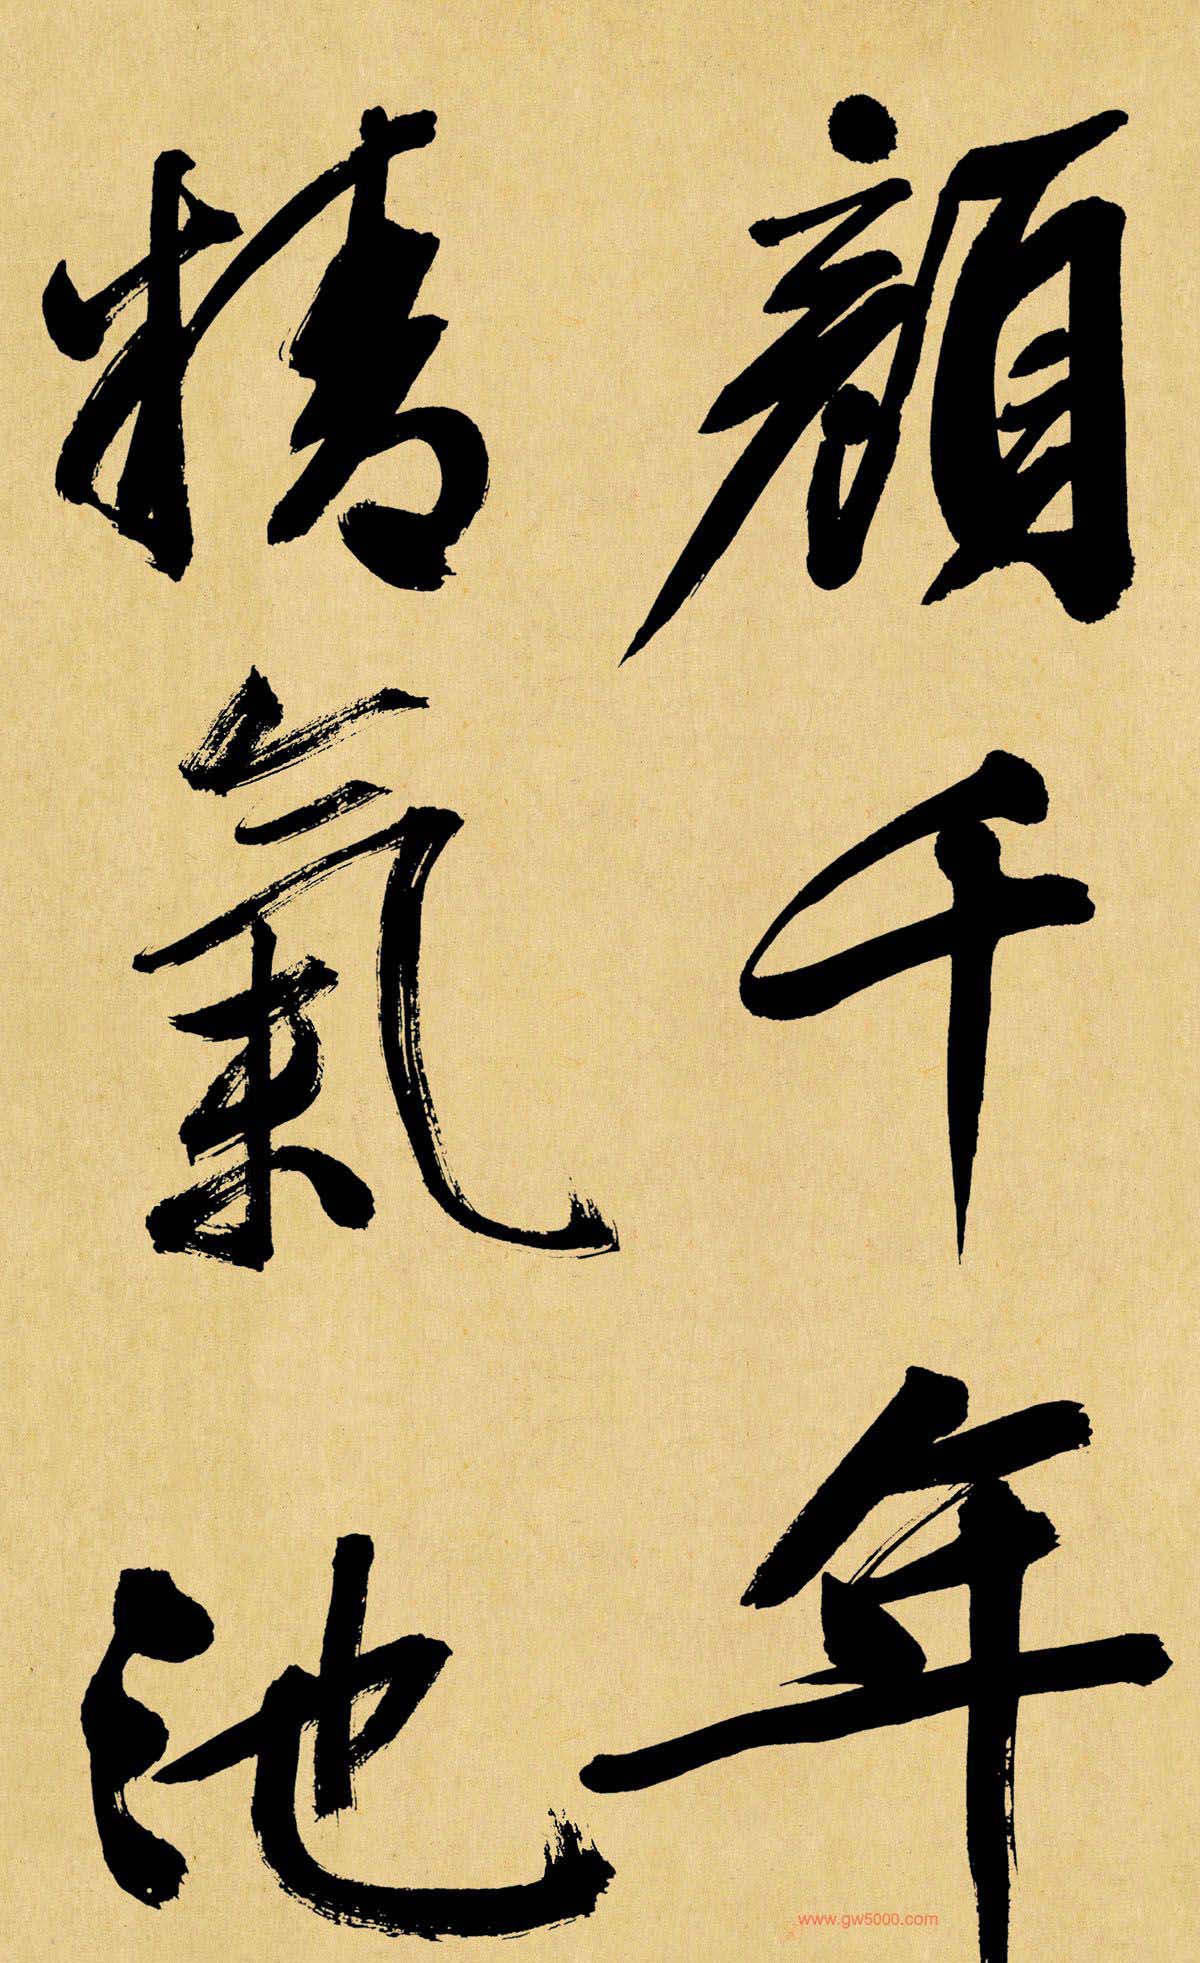 顏千年
精氣池
www.gw5000.com